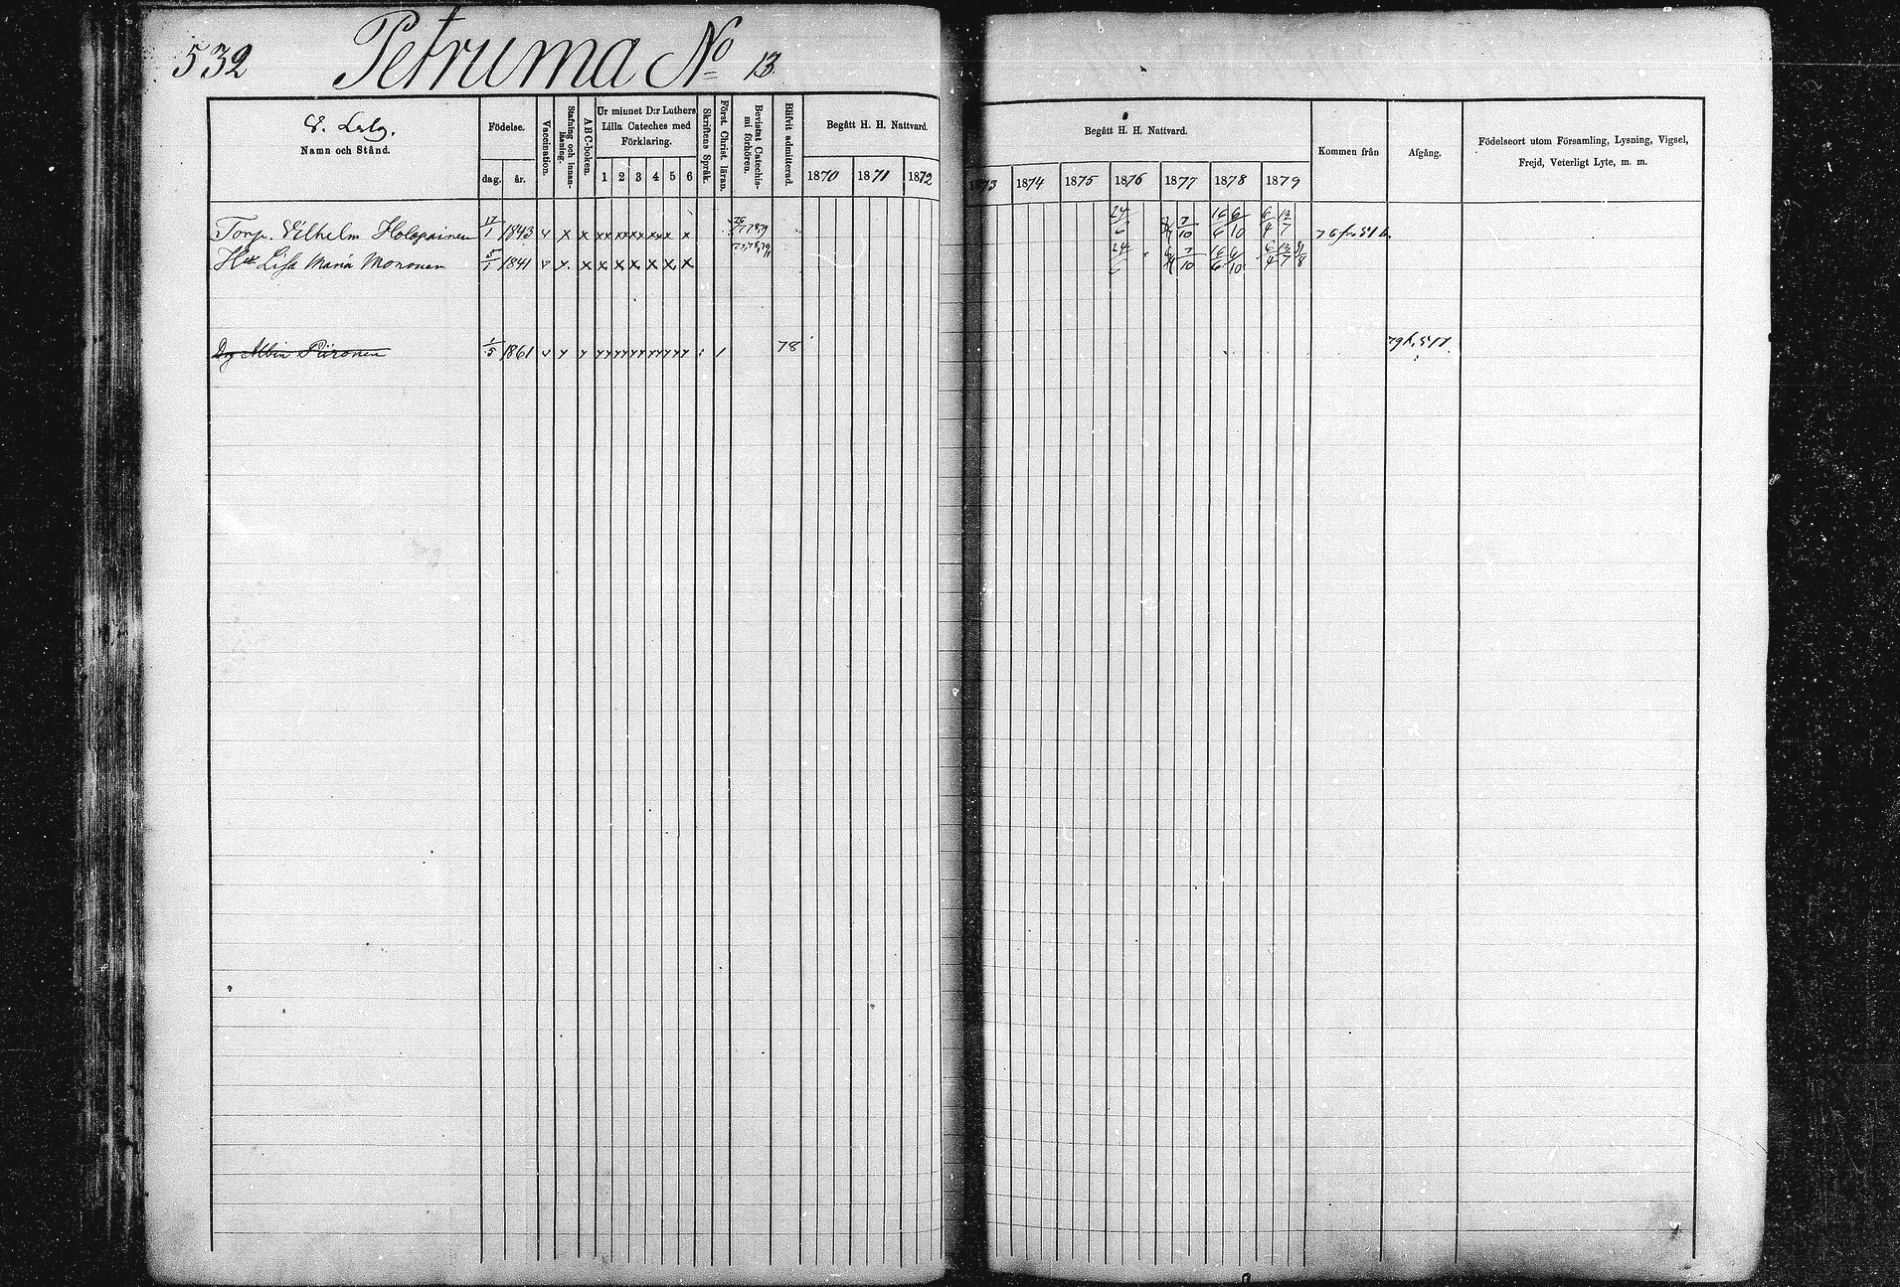 532 Petruma No 13
Namn och Stånd.
Födelse.
dag. år.
Vaccination.
Stafning och innan-
läsning.
ABC-boken.
Ur minnet D:r Luthers
Lilla Cateches med
Förklaring.
1 2 3 4 5 6
Skriftens Språk.
Först. Christ. läran.
Bevistat Catechis-
mi förhören.
Blifvit admitterad.
Begått H. H. Nattvard.
1870 1871 1872
Begått H. H. Nattvard.
1873 1874 1875 1876 1877 1878 1879
Kommen från
Afgång.
Födelseort utom Församling, Lysning, Vigsel,
Frejd, Veterligt Lyte, m. m.
Torp. Vilhelm Holopainen 17/1 1843 v x x xx xx xx xx x x 24/6 7/10 16/6 6/10 6/4 13/7
Lisa Maria Moronen 5/1 1841 v x x x x x x x x 24/6 7/10 16/6 6/10 6/4 13/7 31/8
Albin Piironen 1/5 1861 v y y yy yy yy yy yy yy : / 78 79 p. 517